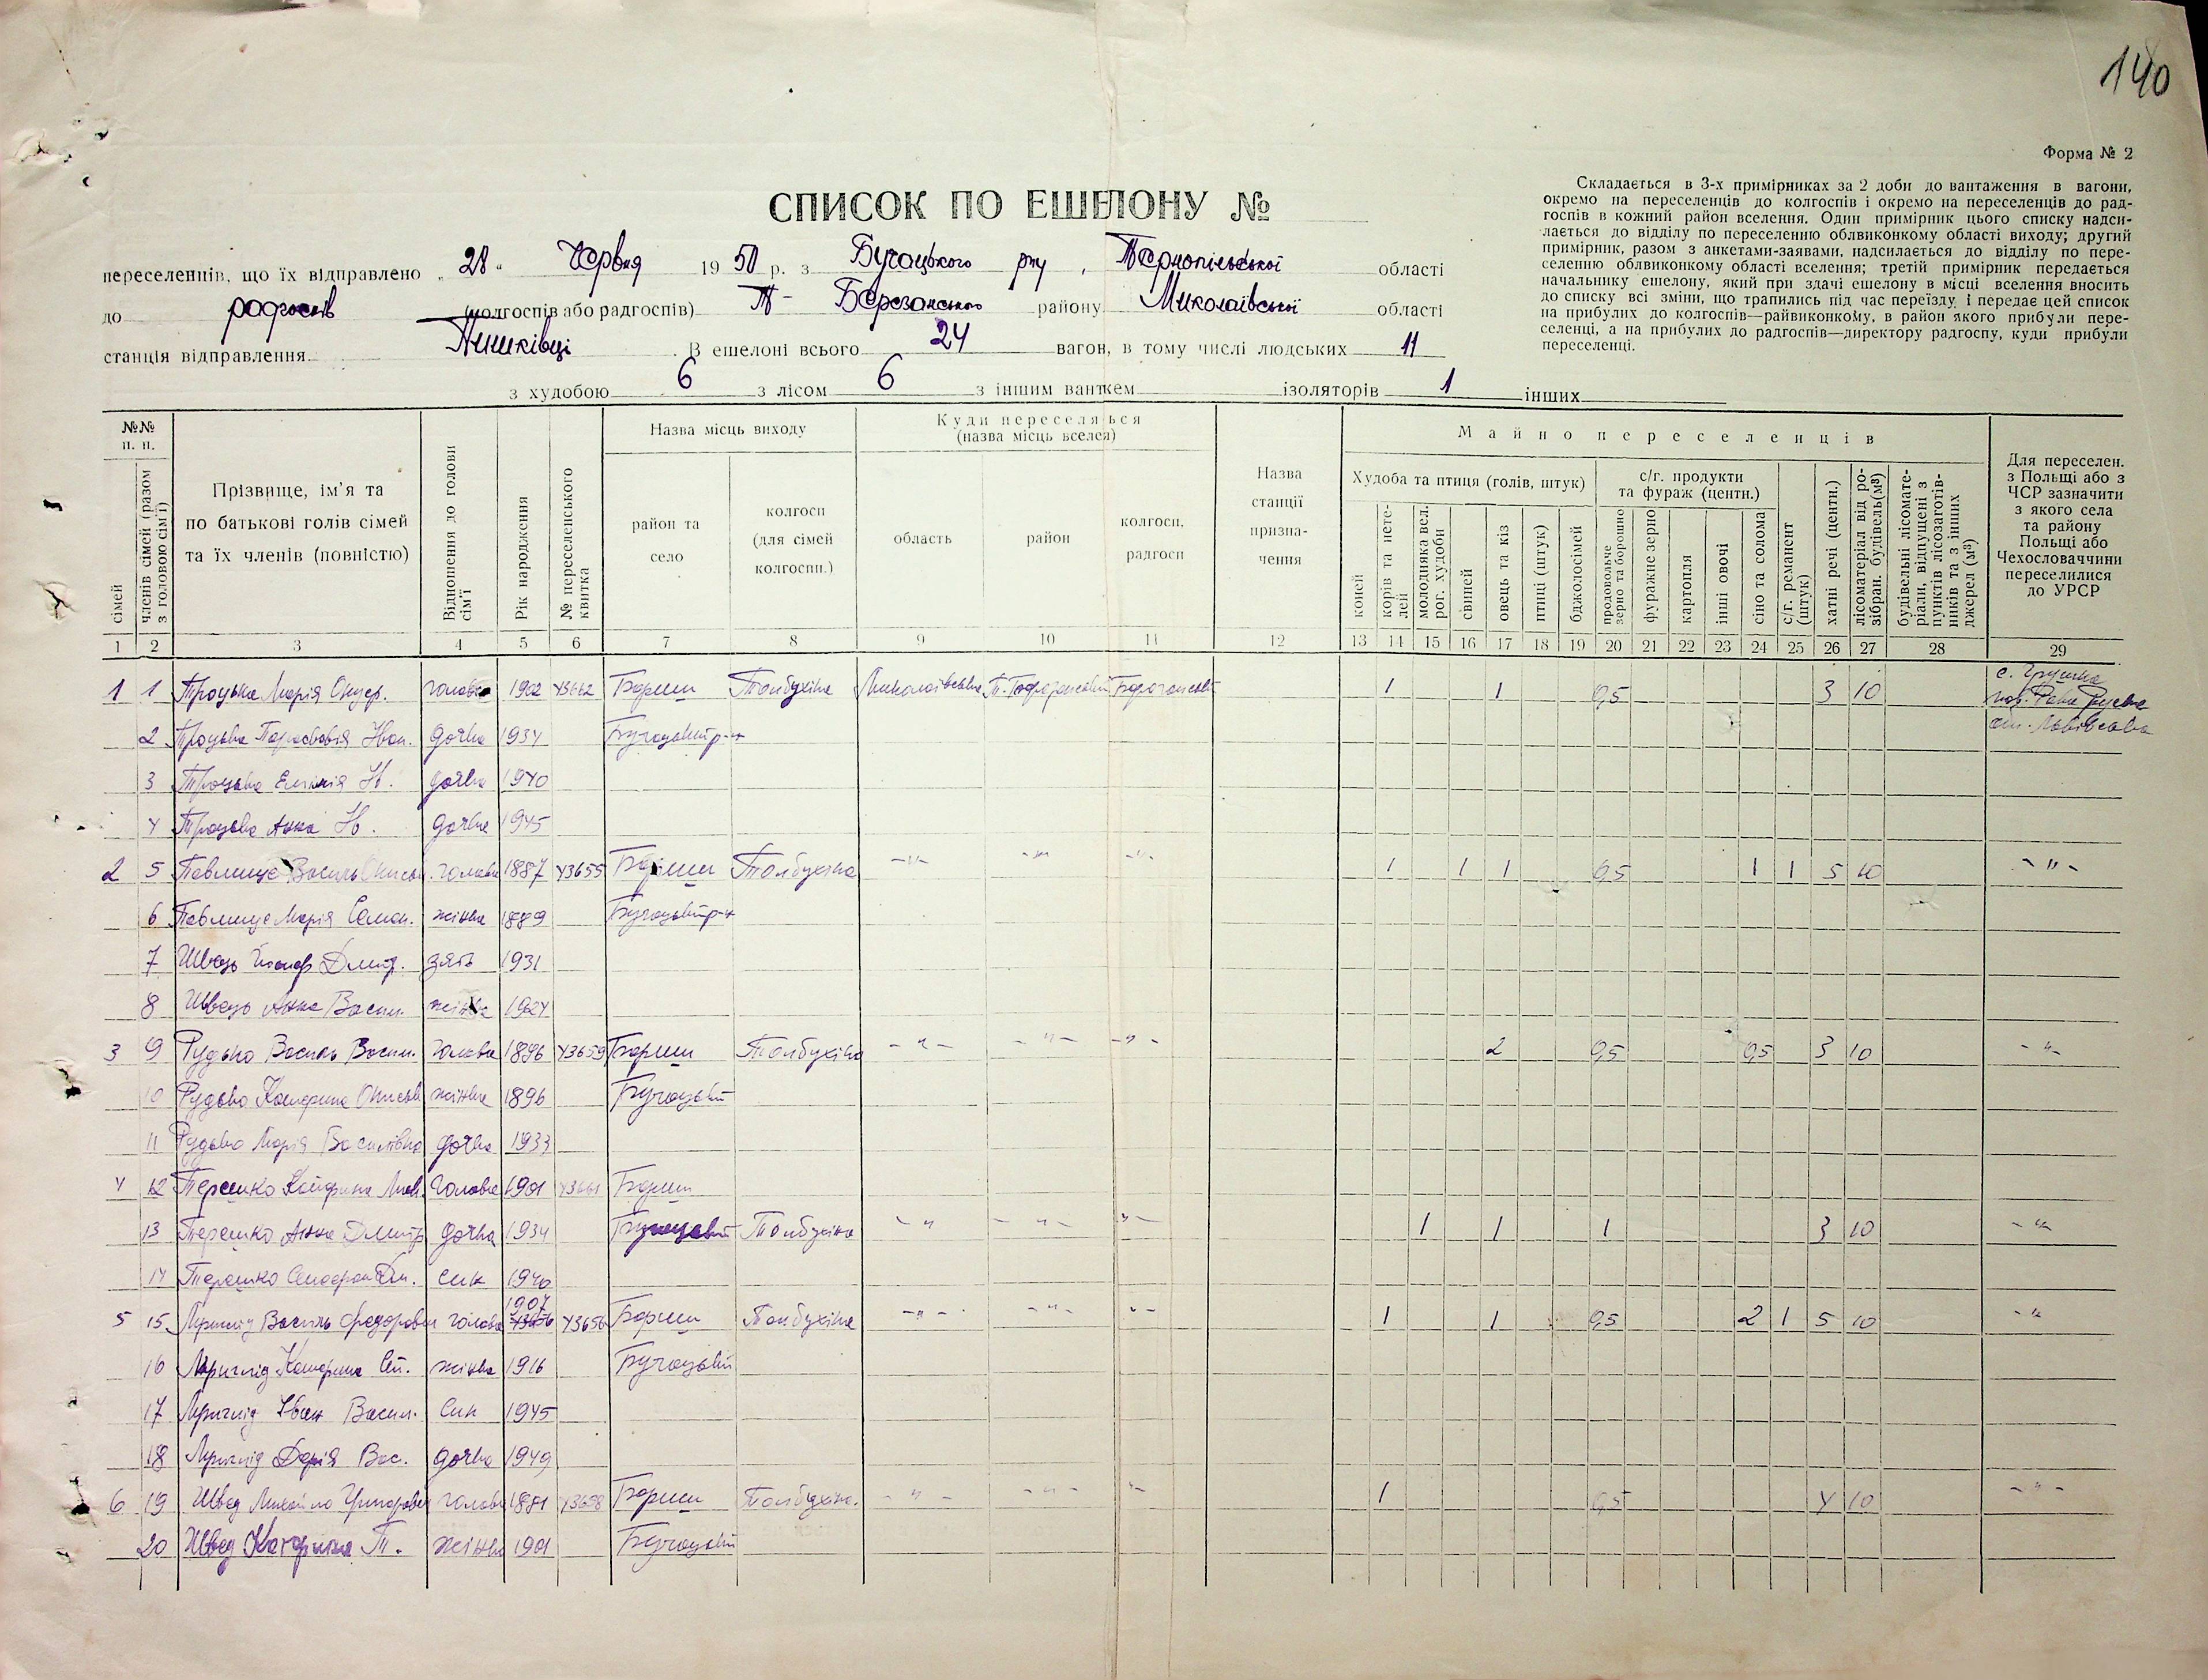 140
Форма № 2
СПИСОК ПО ЕШЕЛОНУ №
Складається в 3-х примірниках за 2 доби до вантаження в вагони,
окремо на переселенців до колгоспів і окремо на переселенців до рад-
госпів в кожний район вселення. Один примірник цього списку надси-
лається до відділу по переселенню облвиконкому області виходу; другий
примірник, разом з анкетами-заявами, надсилається до відділу по пере-
селенню облвиконкому області вселення; третій примірник передається
начальнику ешелону, який при здачі ешелону в місці вселення вносить
до списку всі зміни, що трапились під час переїзду, і передає цей список
на прибулих до колгоспів—райвиконкому, в район якого прибули пере-
селенці, а на прибулих до радгоспів—директору радгоспу, куди прибули
переселенці.
переселенців, що їх відправлено „28“ Червня 1950 р. з Бучацького р-ну, Тернопільської області
до радгоспів (колгоспів або радгоспів) Т- Березанського району Миколаївської області
станція відправлення Пишківці. В ешелоні всього 24 вагон, в тому числі людських 11
з худобою 6 з лісом 6 з іншим вантжем ізоляторів 1 інших
№№ п. п.
сімей
членів сімей (разом з головою сім'ї)
Прізвище, ім'я та
по батькові голів сімей
та їх членів (повністю)
Відношення до голови сім'ї
Рік народження
№ переселенського квитка
Назва місць виходу
район та село
колгосп (для сімей колгоспн.)
Куди переселя ься
(назва місць вселея)
область
район
колгосп, радгосп
Назва станції призна- чення
Майно переселенців
Худоба та птиця (голів, штук)
коней
корів та нете- лей
молодняка вел. рог. худоби
свиней
овець та кіз
птиці (штук)
бджолосімей
с/г. продукти
та фураж (центн.)
продовольче зерно та борошно
фуражне зерно
картопля
інші овочі
сіно та солома
с/г. реманент (штук)
хатні речі (центн.)
лісоматеріал від ро- зібран. будівель (м³)
будівельні лісомате- ріали, відпущені з пунктів лісозаготів- ників та з інших джерел (м³)
Для переселен.
з Польщі або з
ЧСР зазначити
з якого села
та району
Польщі або
Чехословаччини
переселилися
до УРСР
1 2 3 4 5 6 7 8 9 10 11 12 13 14 15 16 17 18 19 20 21 22 23 24 25 26 27 28 29
1 1 Троцька Марія голова 1902 43662 Бариш Толбухіна Миколаївська 1 1 0,5 3 10 с. Грушка
пов. Рава Руська
2 Троцька Параскевія Іван. дочка 1934 Бучацький р-н
3 Троцька Емілія Ів. дочка 1940
4 Троцька Анна Ів. дочка 1945
2 5 Павлище Василь голова 1887 43655 Бариш Толбухіна -"- -"- -"- 1 1 1 0,5 1 1 5 10 -"-
6 Павлище Марія Семен. жінка 1889 Бучацький р-н
7 Швець Йосиф Дмит. зять 1931
8 Швець Анна Васил. жінка 1924
3 9 Рудько Василь Васил. голова 1896 43659 Бариш Толбухіна -"- -"- -"- 2 0,5 0,5 3 10 -"-
10 Рудько Катерина жінка 1896 Бучацький
11 Рудько Марія Василівна дочка 1933
4 12 Терешко Катерина голова 1901 43661 Бариш
13 Терешко Анна Дмитр дочка 1934 Бучацький Толбухіна -"- -"- "- 1 1 1 3 10 -"-
14 Терешко Дм. син 1940
5 15 Василь Федорович голова 1907 43656 Бариш Толбухіна -"- -"- "- 1 1 0,5 2 1 5 10 -"-
16 Катерина жінка 1916 Бучацький
17 Іван Васил. Син 1945
18 Дарія Вас. дочка 1949
6 19 Швед Михайло Григорович голова 1881 43658 Бариш Толбухіна. -"- -"- "- 1 0,5 4 10 -"-
20 Швед Катерина Т. жінка 1901 Бучацький